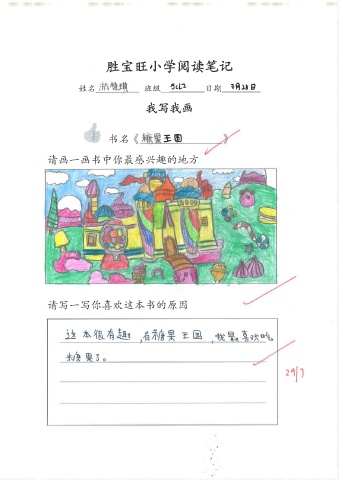 胜宝旺小学阅读笔记
姓名 班级 日期 7月28日
我写我画
书名《糖果王国》
请画一画书中你最感兴趣的地方
请写一写你喜欢这本书的原因
这本很有趣,有糖果王国,我最喜欢吃
糖果了。
29/7